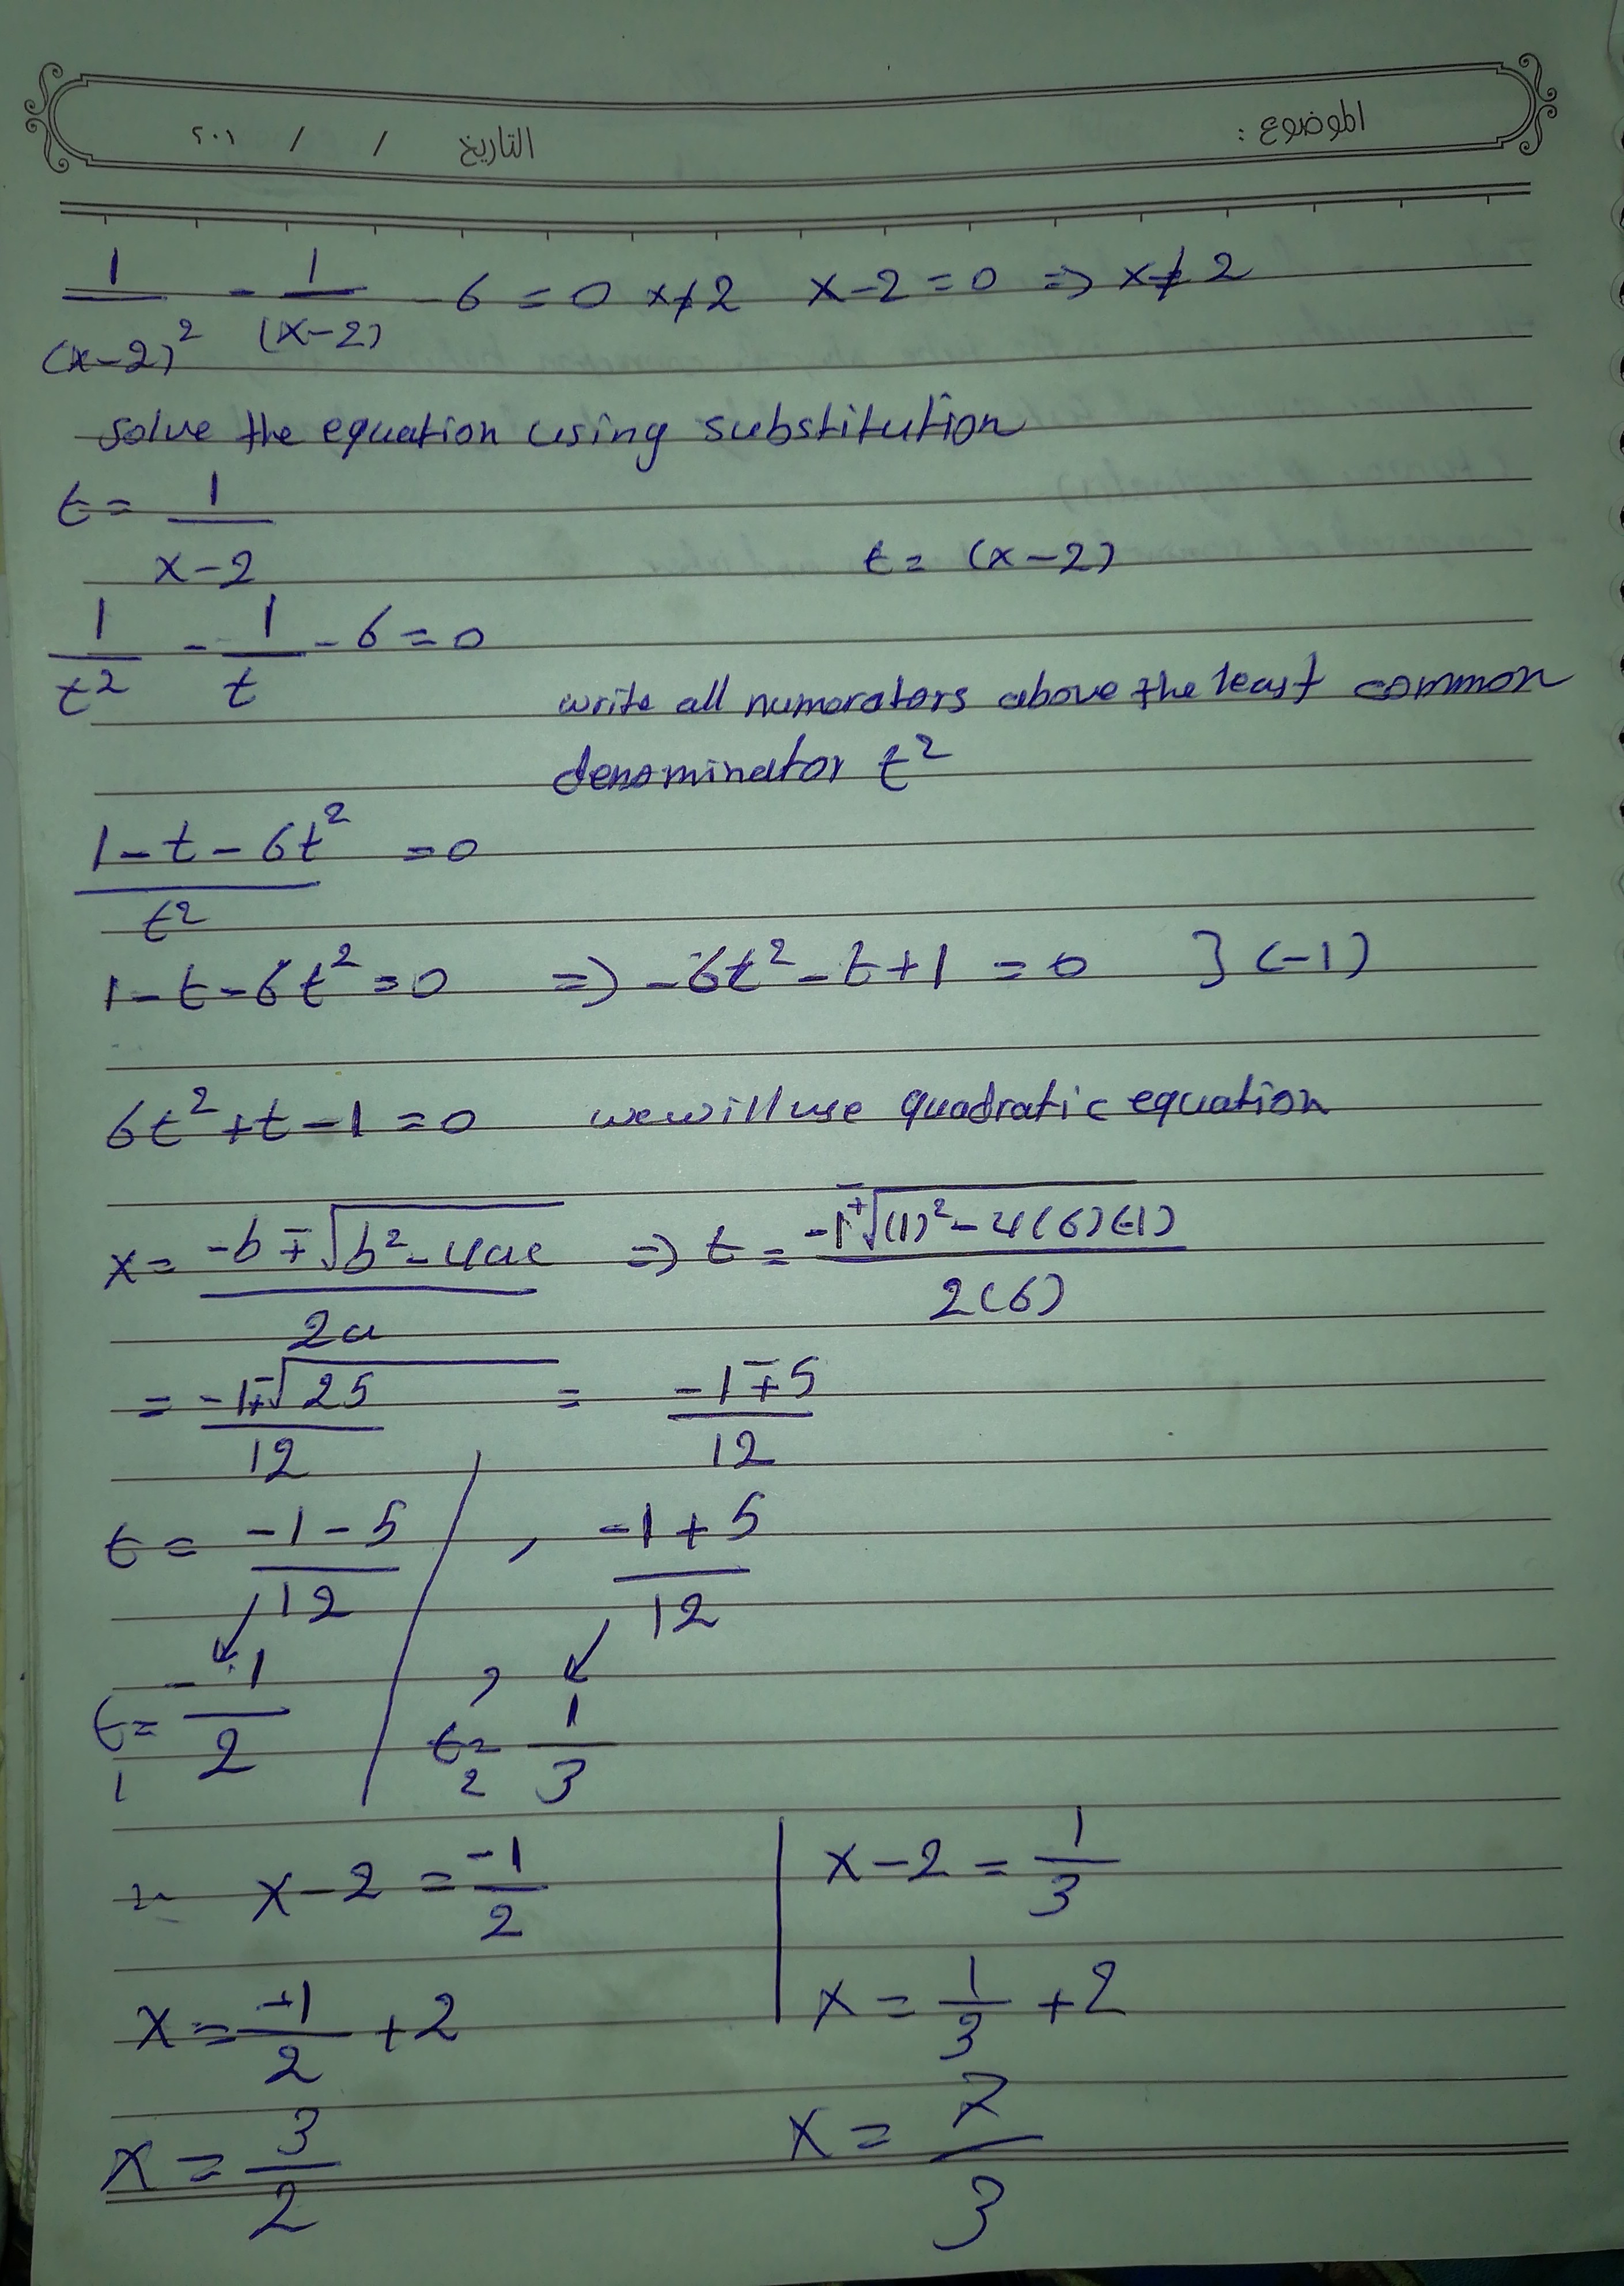 الموضوع : التاريخ / / ٢٠١
1/(x-2)² - 1/(x-2) - 6 = 0 x≠2 x-2=0 => x≠2
solve the equation using substitution
t = 1/x-2
t = (x-2)
1/t² - 1/t - 6 = 0
write all numorators above the least common
denominator t²
1-t-6t²/t² = 0
1-t-6t² = 0 => -6t²-t+1 = 0 } (-1)
6t²+t-1 = 0 we will use quadratic equation
x = -b∓√b²-4ac/2a => t = -1∓√(1)²-4(6)(-1)/2(6)
= -1∓√25/12 = -1∓5/12
t = -1-5/12 , -1+5/12
t₁ = -1/2 , t₂ = 1/3
x-2 = -1/2 x-2 = 1/3
x = -1/2 + 2 x = 1/3 + 2
x = 3/2 x = 7/3